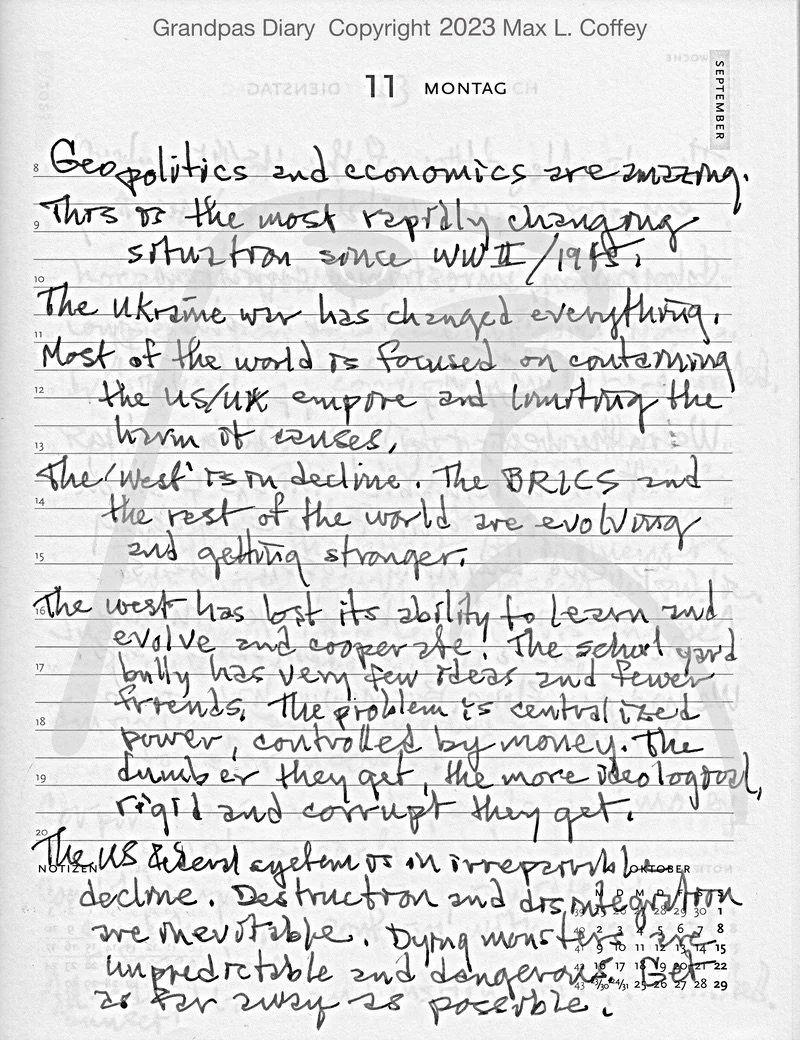 Grandpas Diary Copyright 2023 Max L. Coffey
11 MONTAG
SEPTEMBER
8 Geopolitics and economics are amazing.
9 This is the most rapidly changing
situation since WWII/1945.
10
The Ukraine war has changed everything.
11
Most of the world is focused on containing
12 the US/UK empire and limiting the
13 harm it causes.
The 'West' is in decline. The BRICS and
14 the rest of the world are evolving
15 and getting stronger.
16 The west has lost its ability to learn and
evolve and cooperate! The school yard
17 bully has very few ideas and fewer
friends. The problem is centralized
18 power, controlled by money. The
19 dumber they get, the more ideological,
rigid and corrupt they get.
20
The US federal system is in irreparable
NOTIZEN OKTOBER
decline. Destruction and disintegration
are inevitable. Dying monsters are
unpredictable and dangerous. Get
as far away as possible.
M D M D F S S
39 25 26 27 28 29 30 1
40 2 3 4 5 6 7 8
41 9 10 11 12 13 14 15
42 16 17 18 19 20 21 22
43 23/30 24/31 25 26 27 28 29